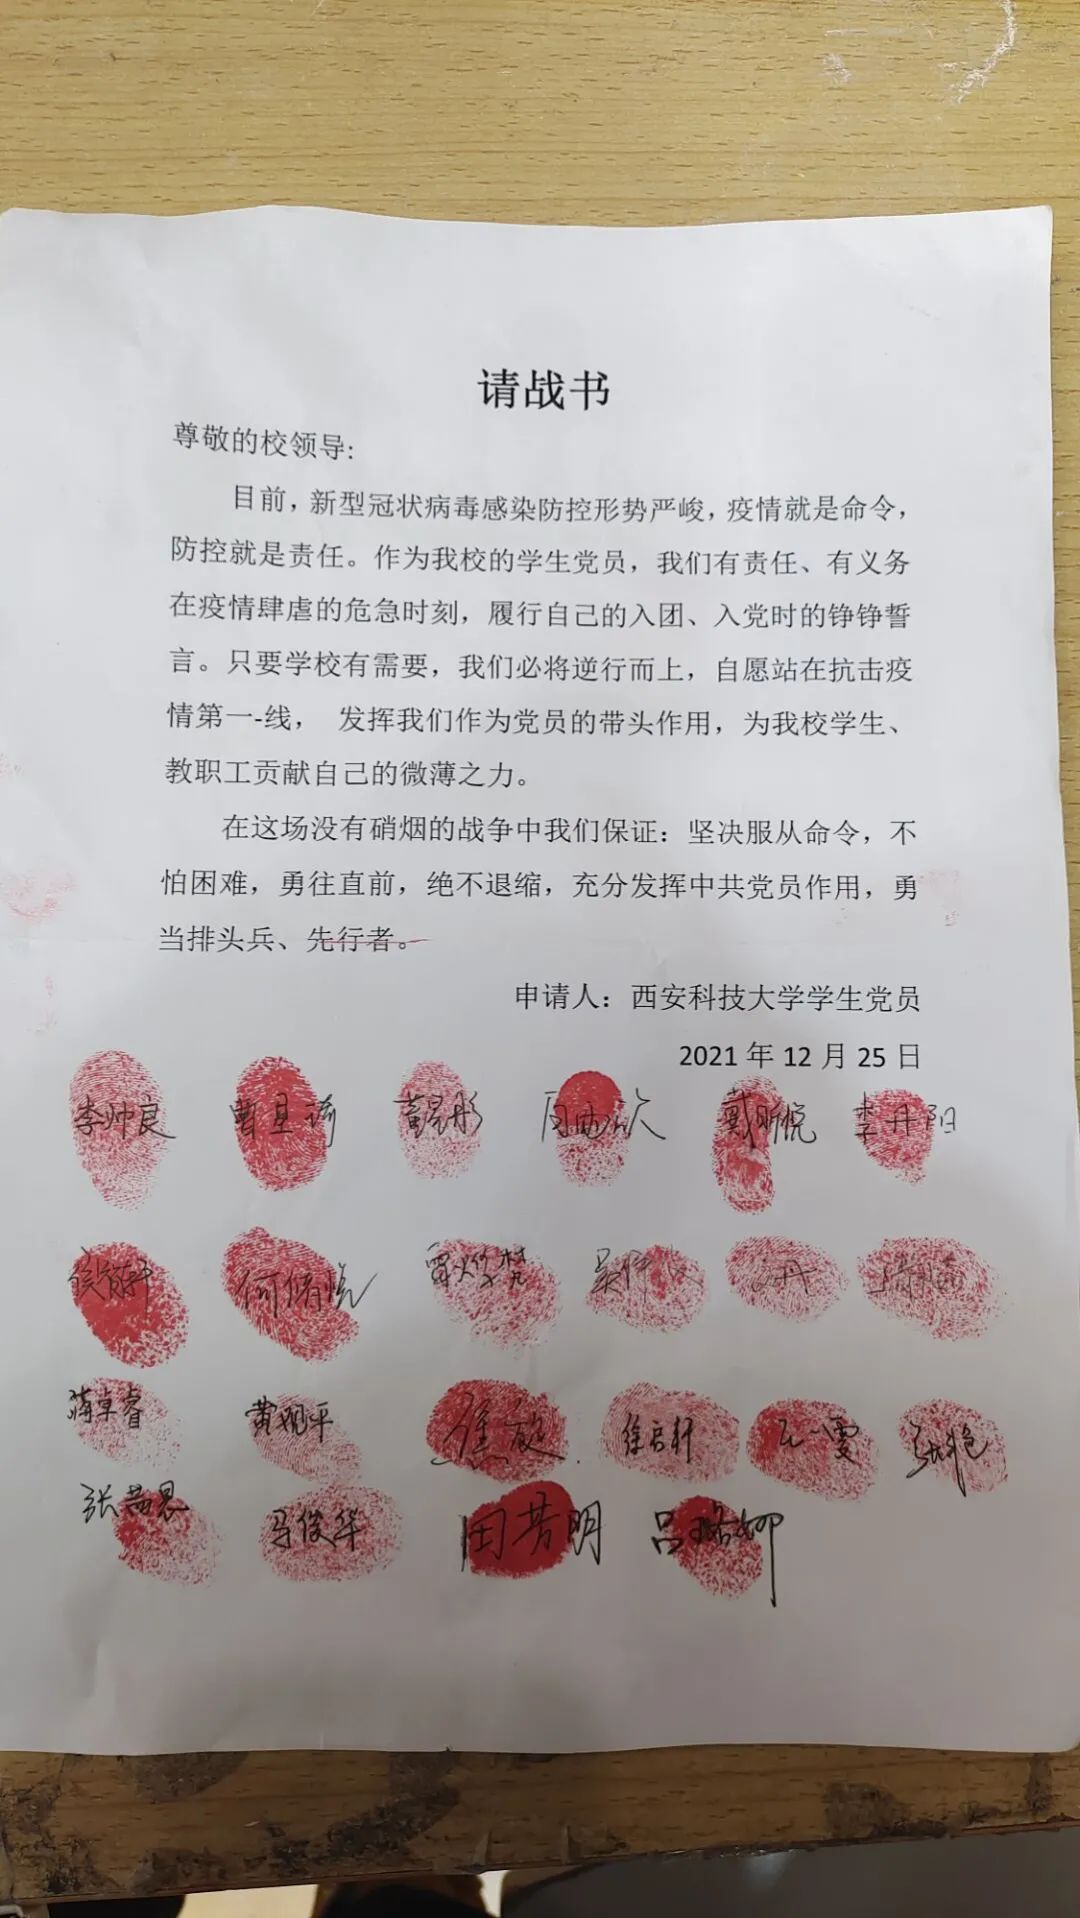 请战书
尊敬的校领导:
目前，新型冠状病毒感染防控形势严峻，疫情就是命令，
防控就是责任。作为我校的学生党员，我们有责任、有义务
在疫情肆虐的危急时刻，履行自己的入团、入党时的铮铮誓
言。只要学校有需要，我们必将逆行而上，自愿站在抗击疫
情第一-线， 发挥我们作为党员的带头作用，为我校学生、
教职工贡献自己的微薄之力。
在这场没有硝烟的战争中我们保证：坚决服从命令，不
怕困难，勇往直前，绝不退缩，充分发挥中共党员作用，勇
当排头兵、先行者。
申请人：西安科技大学学生党员
2021 年 12 月 25 日
李帅良 戴昕悦 李丹阳
何倩悦
蒋卓睿 焦敏 徐启轩 张艳
马俊华 田芳明 吕璐娜